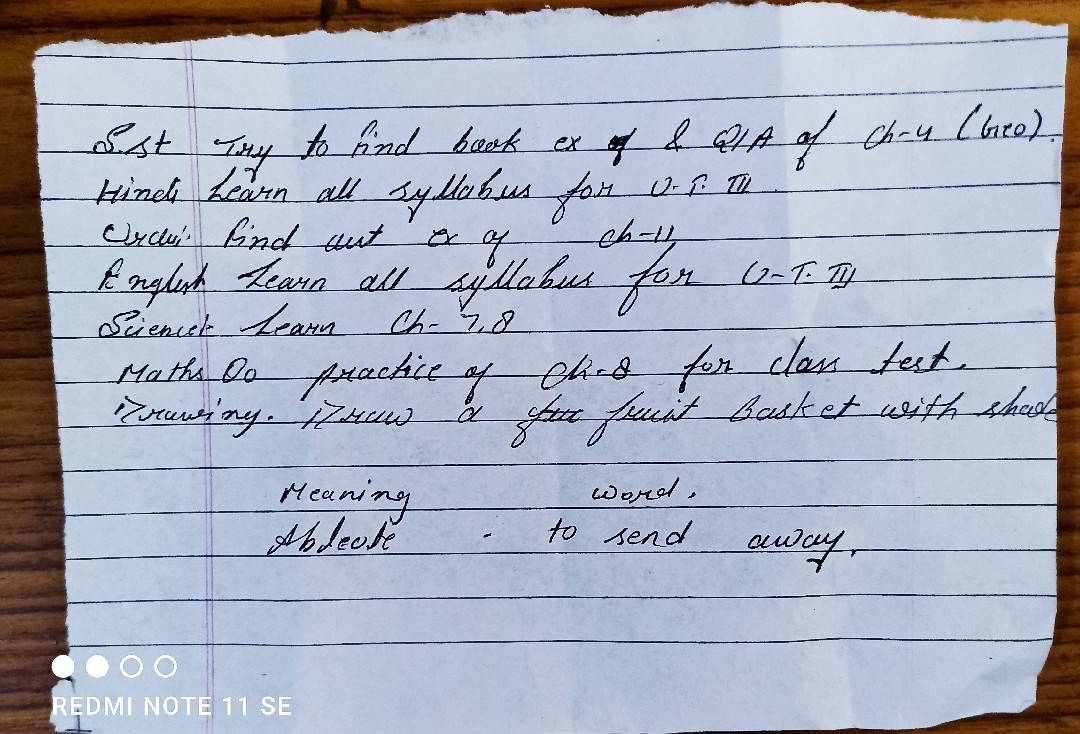 S.st Try to find book ex & Q/A of Ch-4 (Geo).
Hindi Learn all syllabus for U.T. III
Urdu: find out ex of ch-11
English Learn all syllabus for U-T. III
Science Learn Ch- 7,8
Maths Do practice of Ch-8 for class test.
Drawing. Draw a fruit Basket with shade
Meaning word.
- to send away.
REDMI NOTE 11 SE